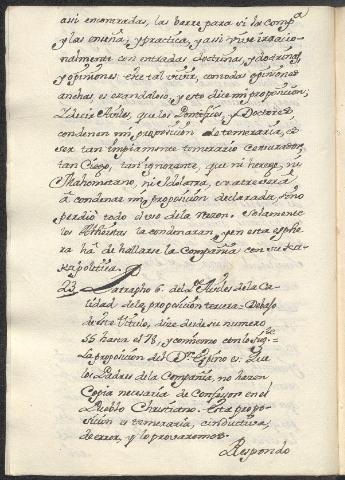 asi encontradas, las borre para si la Compª
y las enseña, y practica, y assi vive irracio-
nalmente con entradas doctrinas, y doctrinas,
y opiniones: che tal vivir, con todas opiniones
anchas es escandaloso, y esto dice mi proposicion;
Y decir Aviles, que los Pontifices, y Doctores
condenen mi proposicion de temeraria, es
ser tan impiamente temerario censurador,
tan Ciego, tan ignorante, que ni herege, ni
Mahometano, ni Idolatra, se atreverá
á condenar mi proposicion declarada, sino
perdió todo el uso de la razon. Solamente
los Atheistas la condenaran, y en esta esphe
ra ha de hallarse la Compañia con su Ka-
kapolitica.
23. Parrapho 6. del Pe. Aviles de la Ca-
lidad de la proposicion tercera. Debajo
de este titulo, dize desde su numero
55 hasta el 78, y comienza con lo sigte.
La proposicion del Dr. Espino es: Que
los Padres de la Compañia, no hazen
Copia necesaria de Confessor en el
Pueblo Christiano. Esta propo-
sicion es temeraria, é inductiva
de error, y lo provaremos.
Respondo